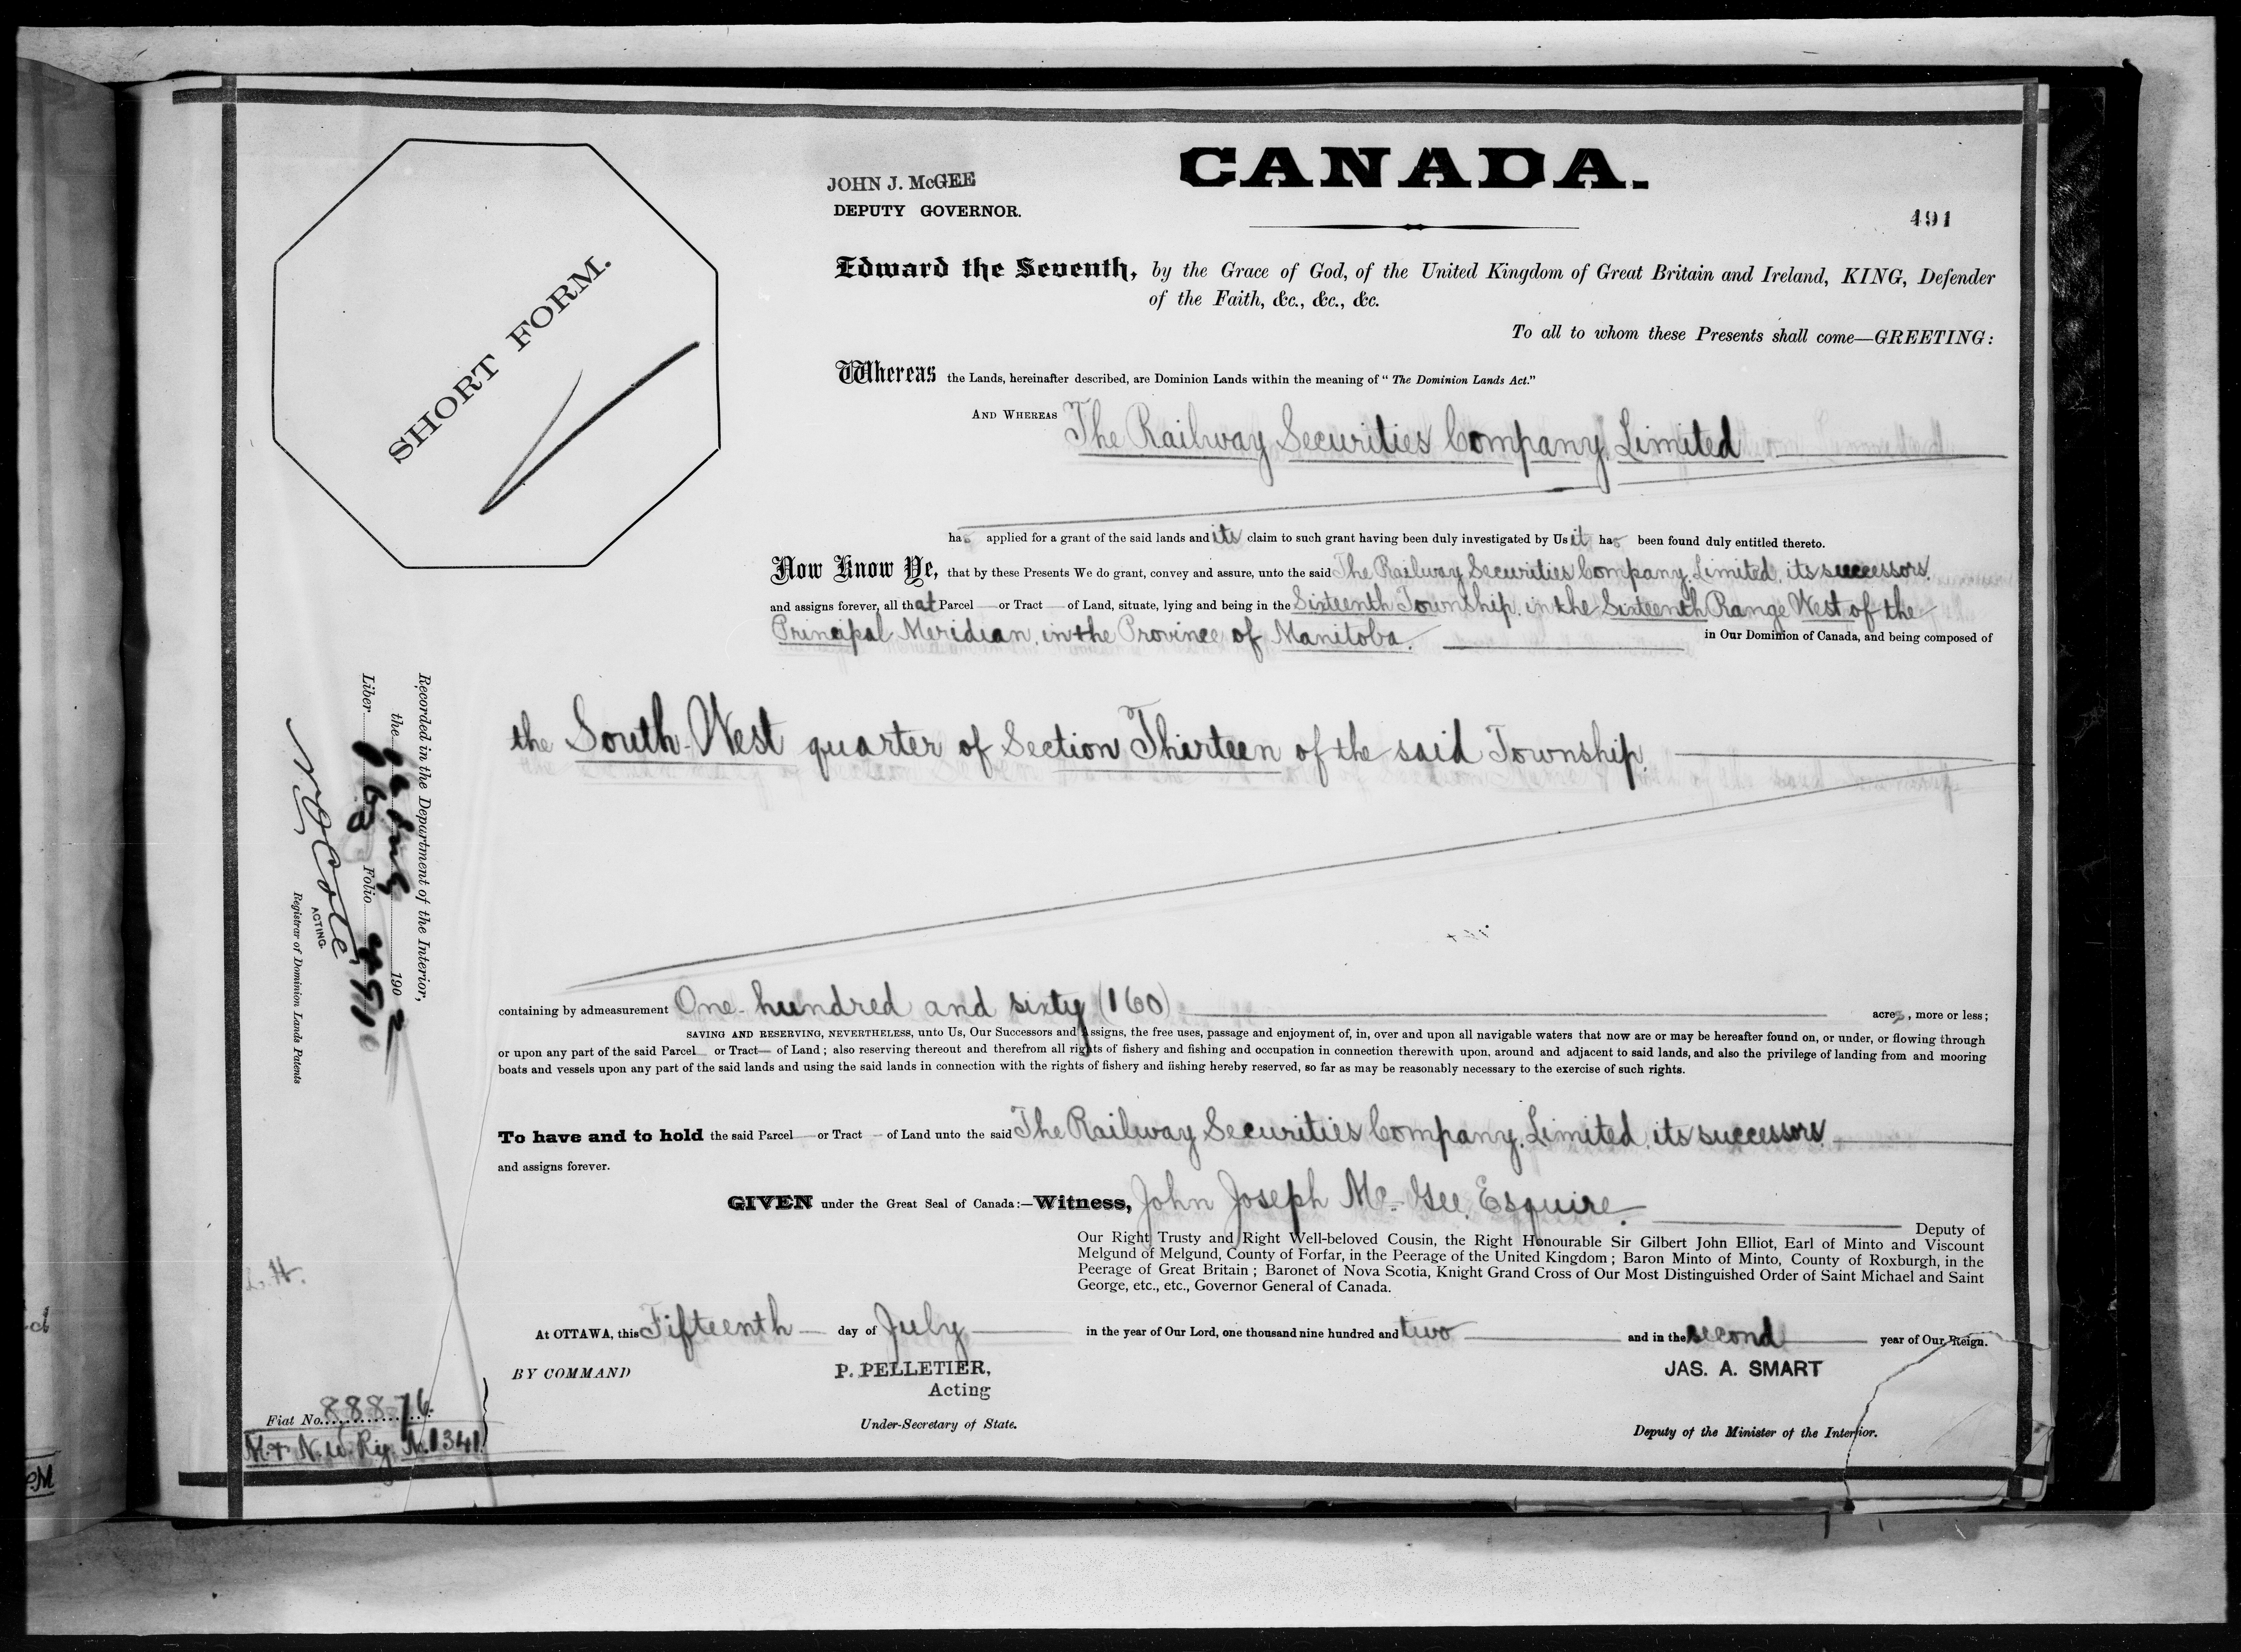 CANADA.
JOHN J. McGEE
DEPUTY GOVERNOR.
491
SHORT FORM.
Edward the Seventh, by the Grace of God, of the United Kingdom of Great Britain and Ireland, KING, Defender
of the Faith, &c., &c., &c.
To all to whom these Presents shall come—GREETING:
Whereas the Lands, hereinafter described, are Dominion Lands within the meaning of "The Dominion Lands Act."
AND WHEREAS The Railway Securities Company, Limited
has applied for a grant of the said lands and its claim to such grant having been duly investigated by Us it has been found duly entitled thereto.
Now Know Ye, that by these Presents We do grant, convey and assure, unto the said The Railway Securities Company, Limited, its successors
and assigns forever, all that Parcel or Tract of Land, situate, lying and being in the Sixteenth Township, in the Sixteenth Range West of the
Principal Meridian, in the Province of Manitoba. in Our Dominion of Canada, and being composed of
the South-West quarter of Section Thirteen of the said Township.
containing by admeasurement One hundred and sixty (160) acres, more or less;
SAVING AND RESERVING, NEVERTHELESS, unto Us, Our Successors and Assigns, the free uses, passage and enjoyment of, in, over and upon all navigable waters that now are or may be hereafter found on, or under, or flowing through
or upon any part of the said Parcel or Tract of Land; also reserving thereout and therefrom all rights of fishery and fishing and occupation in connection therewith upon, around and adjacent to said lands, and also the privilege of landing from and mooring
boats and vessels upon any part of the said lands and using the said lands in connection with the rights of fishery and fishing hereby reserved, so far as may be reasonably necessary to the exercise of such rights.
To have and to hold the said Parcel or Tract of Land unto the said The Railway Securities Company, Limited, its successors
and assigns forever.
GIVEN under the Great Seal of Canada:—Witness, John Joseph McGee, Esquire.
Deputy of
Our Right Trusty and Right Well-beloved Cousin, the Right Honourable Sir Gilbert John Elliot, Earl of Minto and Viscount
Melgund of Melgund, County of Forfar, in the Peerage of the United Kingdom; Baron Minto of Minto, County of Roxburgh, in the
Peerage of Great Britain; Baronet of Nova Scotia, Knight Grand Cross of Our Most Distinguished Order of Saint Michael and Saint
George, etc., etc., Governor General of Canada.
At OTTAWA, this Fifteenth day of July in the year of Our Lord, one thousand nine hundred and two and in the second year of Our Reign.
BY COMMAND
P. PELLETIER,
Acting
Under-Secretary of State.
JAS. A. SMART
Deputy of the Minister of the Interior.
Recorded in the Department of the Interior,
the 190 2
Liber Folio 491
N O Coté
ACTING
Registrar of Dominion Lands Patents
L.H.
Fiat No. 88876
M. & N. W. Ry. No. 1341